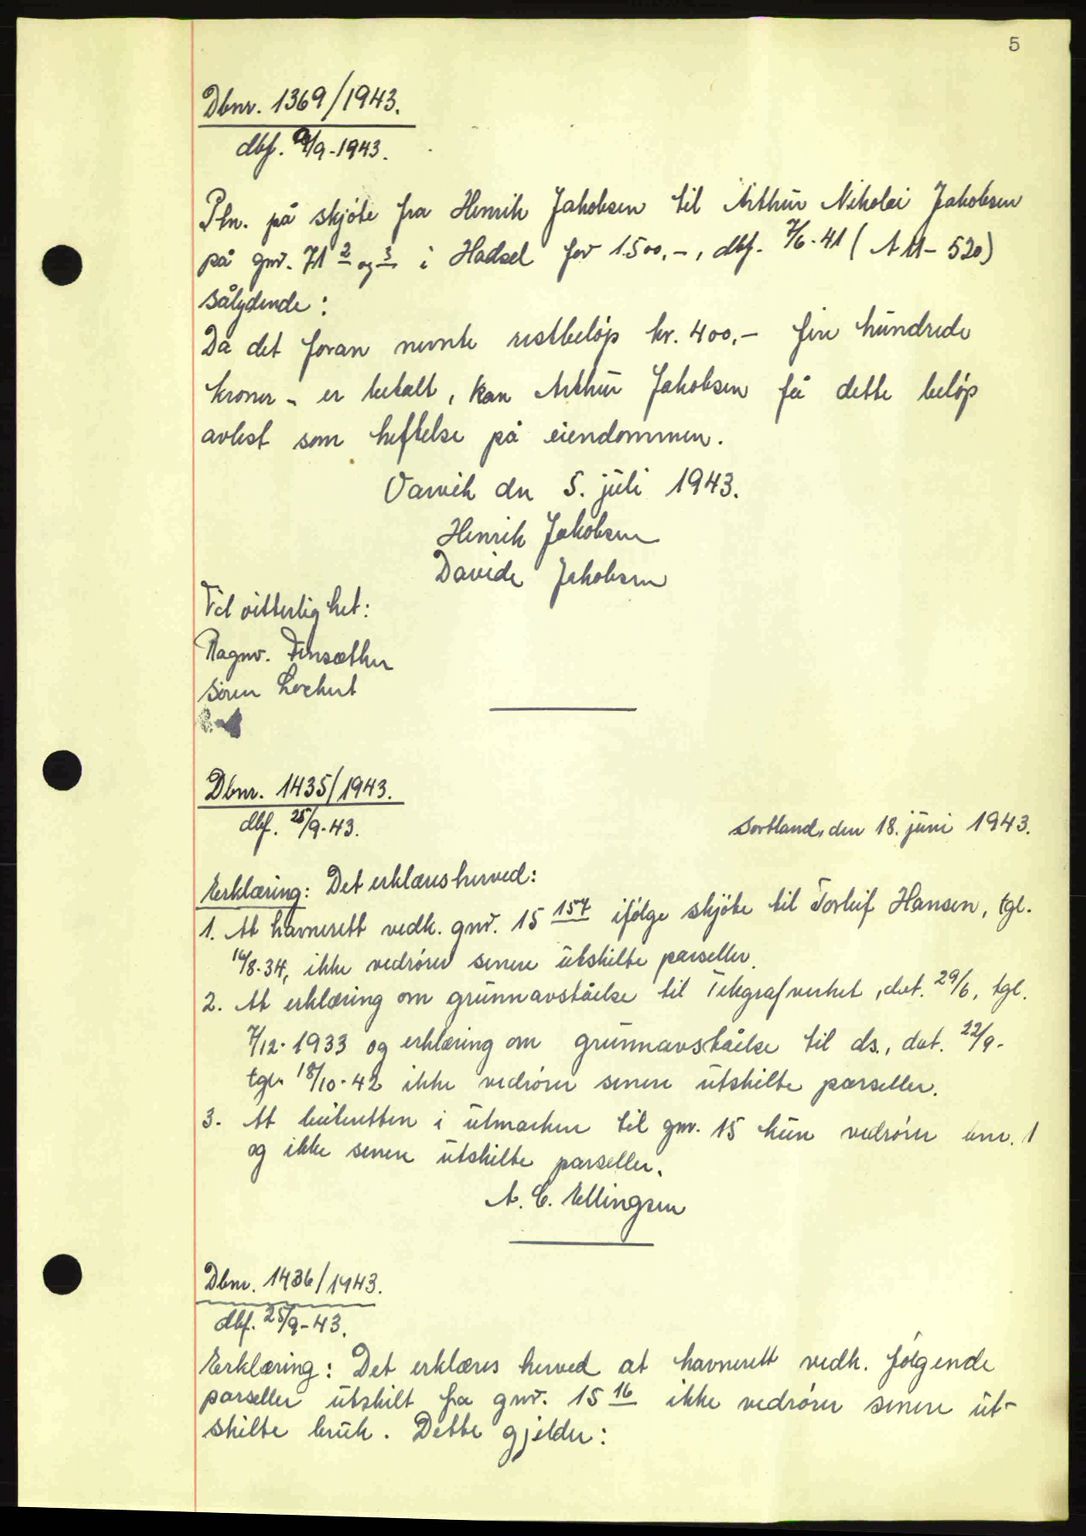 5
Dbnr. 1369/1943.
dbf. 9/9-1943.
Ptn. på skjöte fra Henrik Jakobsen til Arthur Nikolai Jakobsen
på gnr. 71 2 og 3 i Hadsel for 1.500,-, dbf. 7/6-41 (A 11-520)
sålydende:
Da det foran nevnte restbelöp kr. 400,- fire hundrede
kroner - er betalt, kan Arthur Jakobsen få dette belöp
avlest som heftelse på eiendommen.
den 5. juli 1943.
Henrik Jakobsen
Davide Jakobsen
Til vitterlighet:
Ragnv. Finsæther
Sören Lockert
Dbnr. 1435/1943.
dbf. 25/9-43.
Sortland, den 18. juni 1943.
Erklæring: Det erklæres herved:
1. At havnerett vedk. gnr. 15 157 ifölge skjöte til Torleif Hansen, tgl.
/8-34, ikke vedrörer senere utskilte parseller.
2. At erklæring om grunnavståelse til Telegrafverket, dat. 29/6, tgl.
7/12-1933 og erklæring om grunnavståelse til ds., dat. 22/9-
tgl. 18/10-42 ikke vedrörer senere utskilte parseller.
3. At beiteretten i utmarken til gnr. 15 kun vedrörer bnr. 1
og ikke senere utskilte parseller.
A. C. Ellingsen
Dbnr. 1436/1943.
dbf. 25/9-43.
Erklæring: Det erklæres herved at havnerett vedk. fölgende
parseller utskilt fra gnr. 15 16 ikke vedrörer senere ut-
skilte bruk. Dette gjelder: